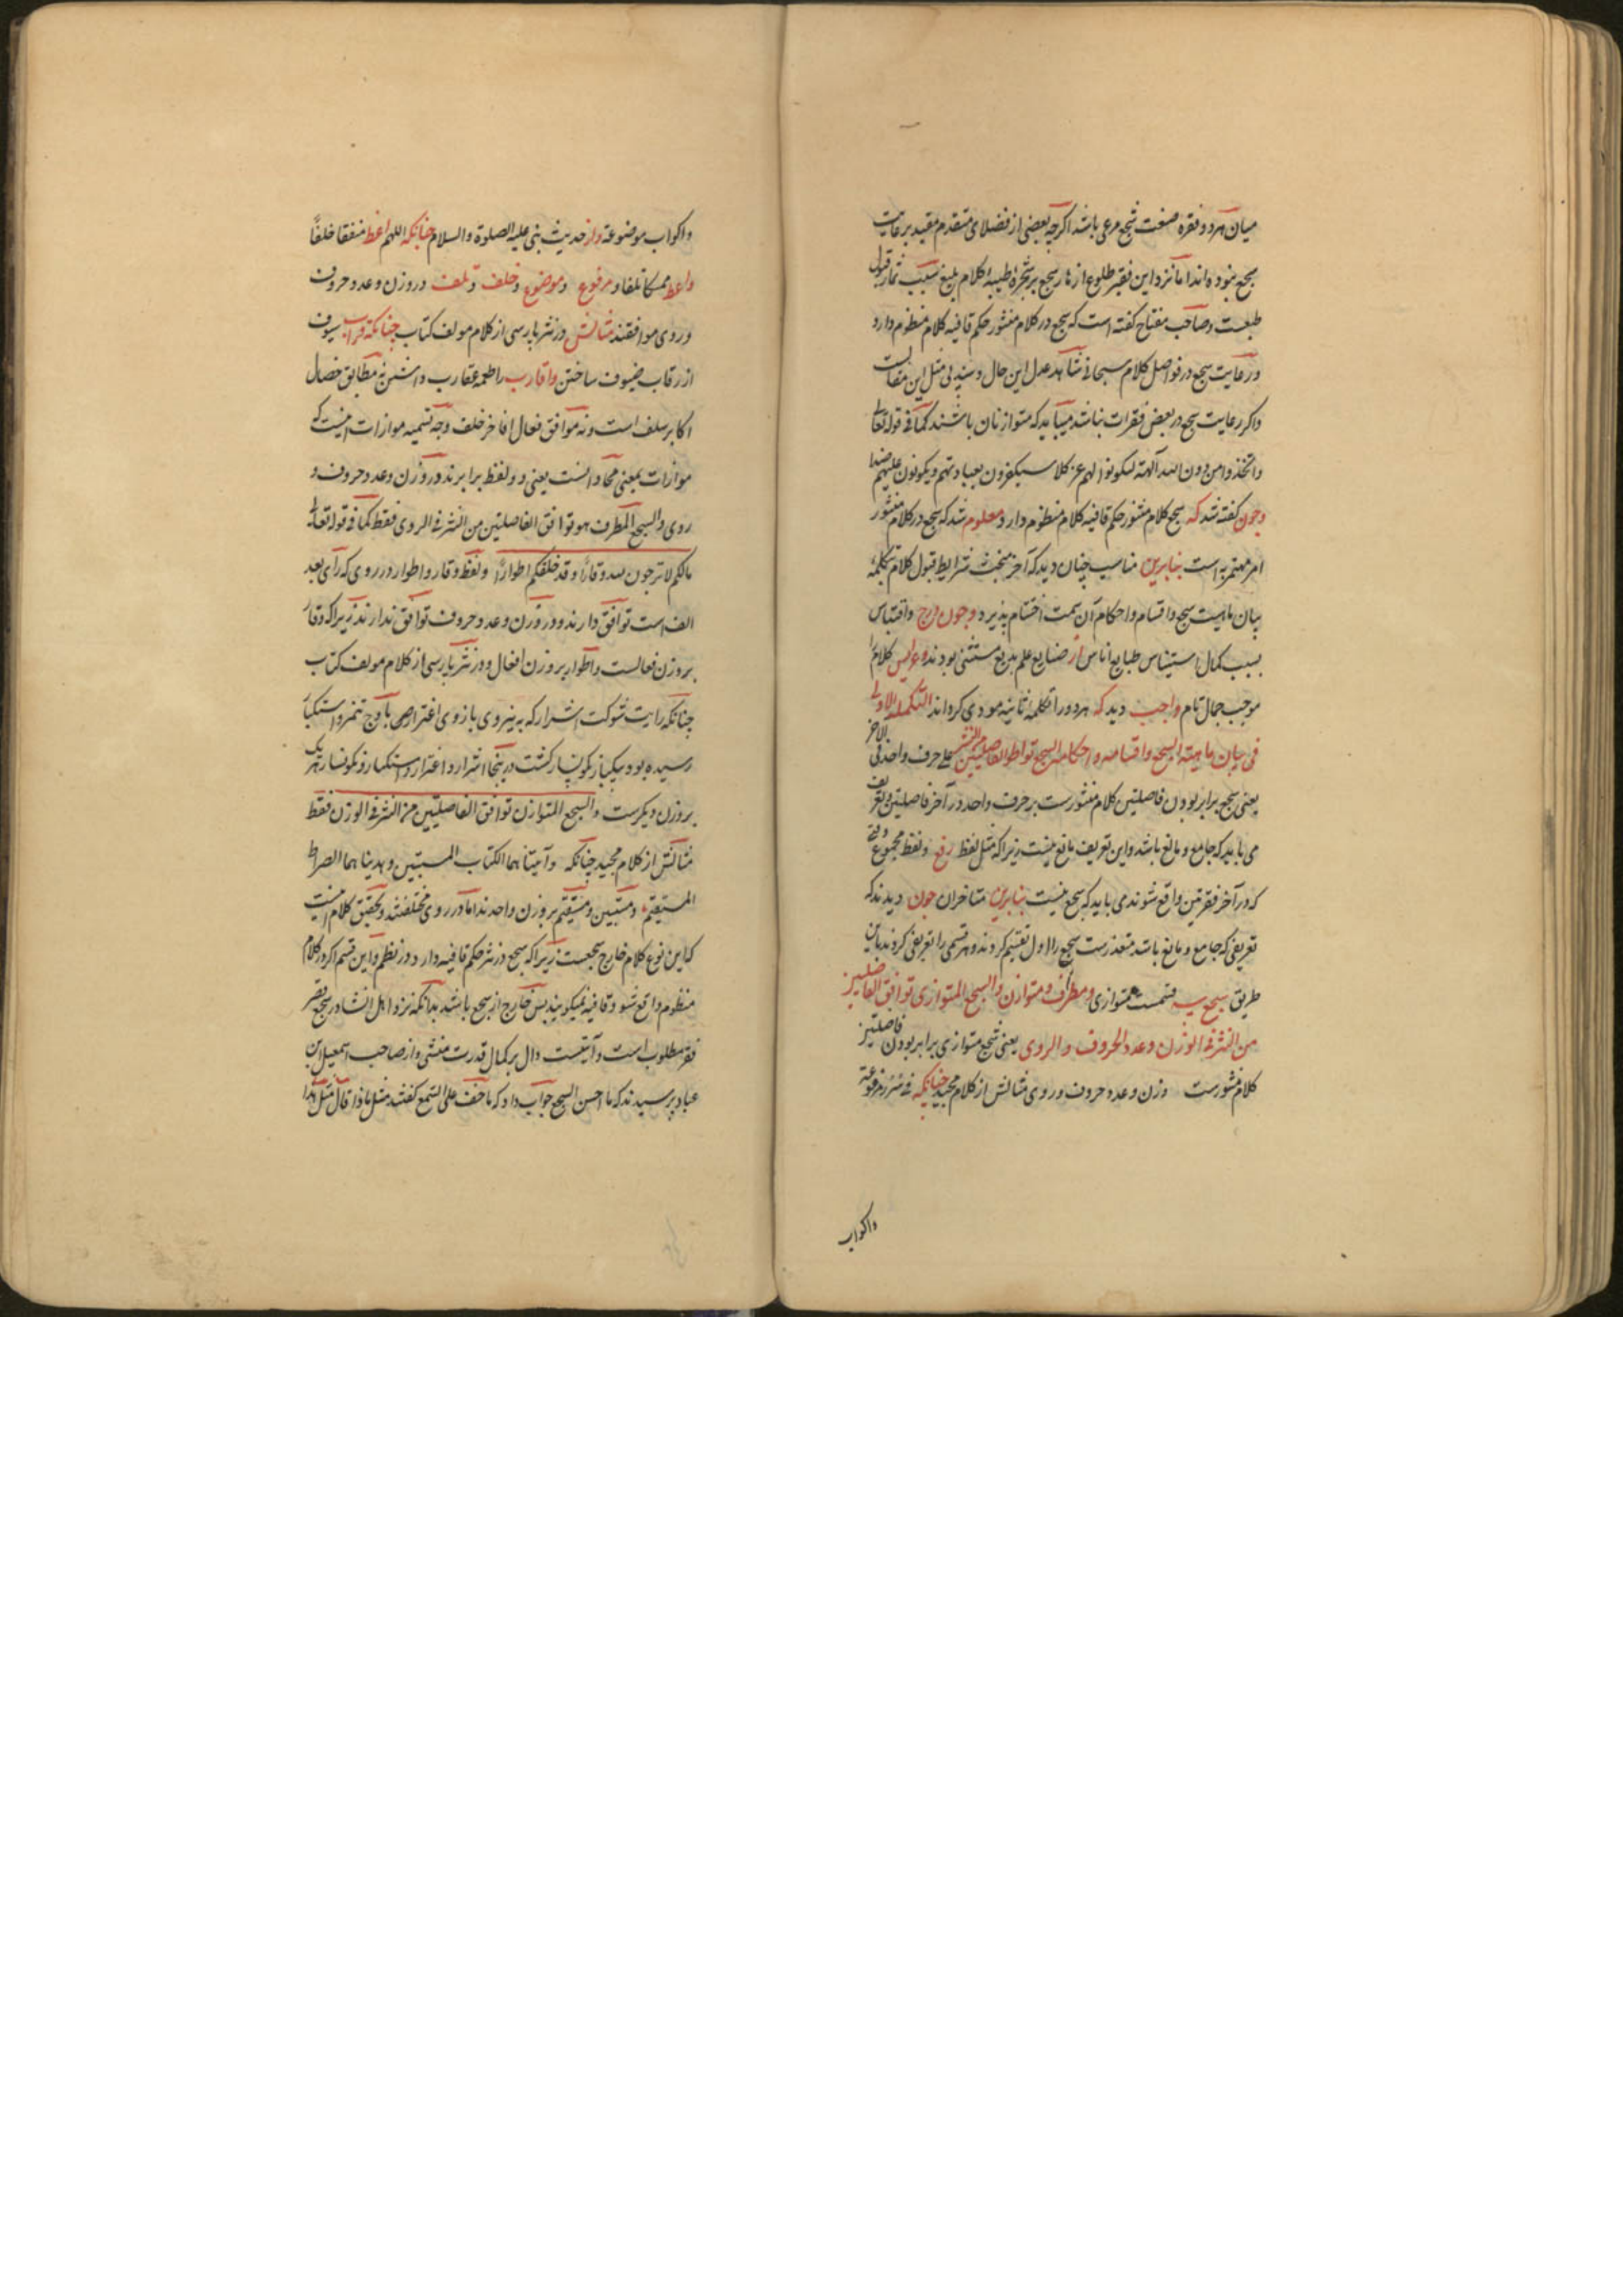 میان هر دو فقره صنعت سجع مرعی باشد اکرچه بعضی از فضلای متقدم مقید برعایت
سجع نبوده‌اند اما نزد این فقیر طلوع ازهار سجع بر شجره طیبه کلام بلیغ سبب ثمار قبول
طبعست و صاحب مفتاح کفته است که سجع در کلام منثور حکم قافیه کلام منظوم دارد
و رعایت سجع در فواصل کلام سبحانی شاهد عدل این حال و مثل این مقالست
و اکر رعایت سجع در بعض فقرات نباشد میباید که متوازنان باشند کما فی قوله تعالی
واتخذوا من دون الله آلهة لیکونوا لهم عزا کلا سیکفرون بعبادتهم ویکونون علیهم ضدا
و چون کفته شد که سجع کلام منثور حکم قافیه کلام منظوم دارد و معلوم شد که سجع در کلام منثور
امر مهتم به است بنابرین مناسب چنان دید که آخر مبحث شرایط قبول کلام بتکلمه
بیان ماهیت سجع و اقسام و احکام آن سمت اختتام پذیرد و چون درج و اقتباس
بسبب کمال استیناس طبایع اناس از صنایع علم بدیع مستثنی بودند و عرایس کلام را
موجب جمال تام واجب دید که هر دو را تکلمه ثانیه مودی کرداند التکملة الاولی
فی بیان ماهیة السجع و اقسامه و احکامه السجع تواطؤ الفاصلتین من النثر علی حرف واحد فی الآخر
یعنی سجع برابر بودن فاصلتین کلام منثورست بر حرف واحد در آخر فاصلتین و تعریف
می باید که جامع و مانع باشد و این تعریف مانع نیست زیرا که مثل لفظ رفع و لفظ مجموع وقتی
که در آخر فقرتین واقع شوند می باید که سجع نیست بنابرین متاخران چون دیدند که
تعریفی که جامع و مانع باشد متعذرست سجع را اول تقسیم کردند و هر قسمی را تعریفی کردند باین
طریق سجع سه قسمست متوازی و مطرف و متوازن والسجع المتوازی توافق الفاصلتین
من النثر فی الوزن وعدد الحروف والروی یعنی سجع متوازی برابر بودن فاصلتین
کلام منثورست وزن و عدد حروف و روی مثالش از کلام مجید چنانکه فی سرر مرفوعة
واکواب
واکواب موضوعة و از حدیث نبی علیه الصلوة والسلام چنانکه اللهم اعط منفقا خلفا
واعط ممسکا تلفا و مرفوع و موضوع و خلف و تلف در وزن و عدد حروف
و روی موافقند مثالش در نثر پارسی از کلام مولف کتاب چنانکه قراب سیوف
از رقاب ضیوف ساختن و اقارب را طعمه عقارب داشتن نه مطابق خصال
اکابر سلف است و نه موافق فعال افاخر خلف وجه تسمیه موازات اینست که
موازات بمعنی محاذاتست یعنی دو لفظ برابرند در وزن و عدد حروف و
روی والسجع المطرف هو توافق الفاصلتین من النثر فی الروی فقط کما فی قوله تعالی
مالکم لا ترجون لله وقارا وقد خلقکم اطوارا و لفظ وقار و اطوار در روی که رای بعد
الف است توافق دارند و در وزن و عدد حروف توافق ندارند زیرا که وقار
بر وزن فعالست و اطوار بر وزن افعال و در نثر پارسی از کلام مولف کتاب
چنانکه رایت شوکت اشرار که به نیروی بازوی اغترار باوج تنمر و استکبار
رسیده بود بیکبار نکونسار کشت در اینجا اشرار و اغترار و استکبار و نکونسار هر یک
بر وزن دیکرست والسجع المتوازن توافق الفاصلتین من النثر فی الوزن فقط
مثالش از کلام مجید چنانکه وآتیناهما الکتاب المستبین وهدیناهما الصراط
المستقیم و مستبین و مستقیم بر وزن واحدند اما در روی مختلفند و تحقیق کلام اینست
که این نوع کلام خارج سجعست زیرا که سجع در نثر حکم قافیه دارد در نظم و این قسم اکر در کلام
منظوم واقع شود قافیه نمیکویند پس خارج از سجع باشد بدانکه نزد اهل انشا در سجع قصر
فقر مطلوب است و آیتیست دال بر کمال قدرت منشی و از صاحب اسمعیل ابن
عباد پرسیدند که ما احسن السجع جواب داد که ما خف علی السمع کفتند مثل ماذا قال مثل هذا